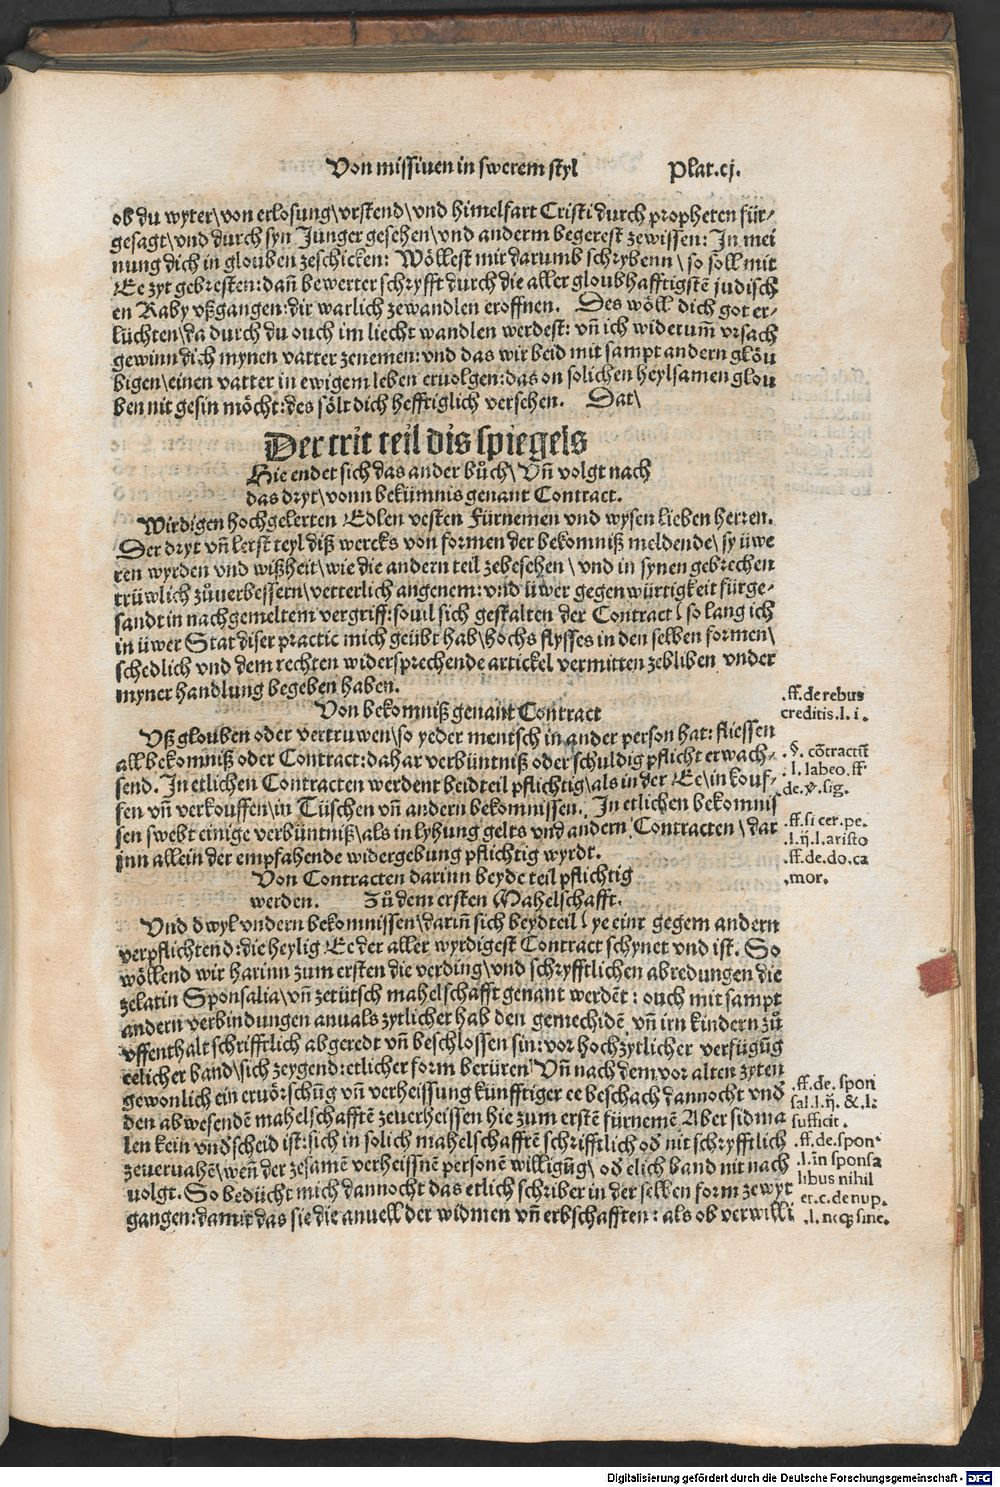 Von missiuen in swerem styl Plat.cj.
ob du wyter\von erlosung\vrstend\vnd himelfart Cristi durch propheten für⸗
gesagt\vnd durch syn Junger gesehen\vnd anderm begerest zewissen: In mei
nung dich in glouben zeschicken: Wöllest mir darumb schrybenn\so soll mit
Ee zyt gebresten: dañ bewerter schryfft durch die aller gloubhafftigstẽ judisch
en Raby vßgangen: dir warlich zewandlen eroffnen. Des wöll dich got er⸗
lüchten\da durch du ouch im liecht wandlen werdest: vñ ich widerum̃ vrsach
gewinn dich mynen vatter zenemen: vnd das wir beid mit sampt andern glöu
bigen\einen vatter in ewigem leben eruolgen: das on solichen heylsamen glou
ben nit gesin möcht: des sölt dich hefftiglich versehen. Dat\
Der trit teil dis spiegels
Hie endet sich das ander bůch\Vñ volgt nach
das dryt\vonn bekümnis genant Contract.
Wirdigen hochgelerten Edlen vesten Fürnemen vnd wysen lieben herren.
Der dryt vñ letst teyl diß wercks von formen der bekomniß meldende\sy üwe
ren wyrden vnd wißheit\wie die andern teil zebesehen\vnd in synen gebrechen
trüwlich zůuerbessern\vetterlich angenem: vnd üwer gegenwürtigkeit fürge⸗
sandt in nachgemeltem vergriff: souil sich gestalten der Contract\so lang ich
in üwer Stat diser practic mich geübt hab\hochs flysses in den selben formen\
schedlich vnd dem rechten widersprechende artickel vermitten zebliben vnder
myner handlung begeben haben.
Von bekomniß genant Contract
Vß glouben oder vertruwen\so yeder mentsch in ander person hat: fliessen
all bekomniß oder Contract: dahar verbüntniß oder schuldig pflicht erwach⸗
send. In etlichen Contracten werdent beidteil pflichtig\als in der Ee\in kouf⸗
fen vñ verkouffen\in Tüschen vñ andern bekomnissen. In etlichen bekomnis
sen swebt einige verbüntniß\als in lyhung gelts vnd andern Contracten\dar
inn allein der empfahende widergebung pflichtig wyrdt.
Von Contracten darinn beyde teil pflichtig
werden. Zů dem ersten Mahelschafft.
Vnd dwyl vndern bekomnissen\darin̄ sich beydteil\ye einr gegem andern
verpflichtend: die heylig Ee der aller wyrdigest Contract schynet vnd ist. So
wöllend wir harinn zum ersten die verding\vnd schryfftlichen abredungen die
zelatin Sponsalia\vñ zetütsch mahelschafft genant werdẽt: ouch mit sampt
andern verbindungen anuals zytlicher hab den gemechidẽ vñ irn kindern zů
vffenthalt schrifftlich abgeredt vñ beschlossen sin: vor hochzytlicher verfügũg
eelicher band\sich zeygend: etlicher form berüren. Vñ nach dem vor alten zyten
gewonlich ein eruörschũg vñ verheissung künfftiger ee beschach dannocht vnd
den abwesendẽ mahelschafftẽ zeuerheissen hie zum erstẽ fürnemẽ Aber sidma
len kein vnd'scheid ist: sich in solich mahelschafftẽ schrifftlich od' nit schryfftlich
zeueruahẽ\weñ der zesamẽ verheissnẽ personẽ willigũg\od' elich band nit nach
uolgt. So bedücht mich dannocht das etlich schriber in der selben form ze wyt
gangen: damit das sie die anuell der widmen vñ erbschafften: als ob verwilli
.ff. de rebus
creditis.l.i.
.§. cõtractũ
.l. labeo.ff
de.v̑.sig.
.ff. si cer.pe.
.l.ij.l.aristo
.ff.de.do.ca
.mor.
.ff.de. spon
sal.l.ij.&.l:
sufficit.
.ff.de.spon
.l.in sponsa
libus nihil
et.c.de nup.
.l. neq; sine.
Digitalisierung gefördert durch die Deutsche Forschungsgemeinschaft - DFG